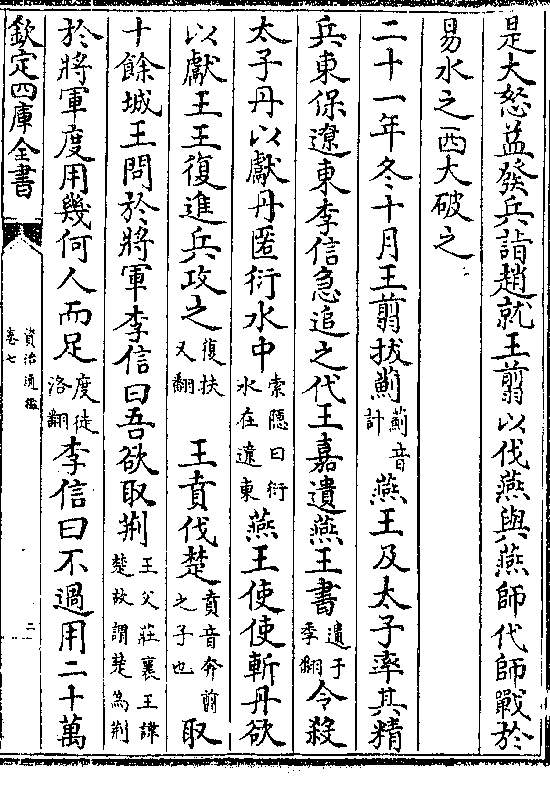 是大怒益發兵詣趙就王翦以伐燕與燕師代師戰於
易水之西大破之
二十一年冬十月王翦拔薊薊音計燕王及太子率其精
兵東保遼東李信急追之代王嘉遺燕王書遺于季翻令殺
太子丹以獻丹匿衍水中索隱曰衍水在遼東燕王使使斬丹欲
以獻王王復進兵攻之復扶又翻 王賁伐楚賁音奔翦之子也取
十餘城王問於將軍李信曰吾欲取荆王父莊襄王諱楚故謂楚為荆
於將軍度用幾何人而足度徒洛翻李信曰不過用二十萬
欽定四庫全書
資治通鑑
卷七
二